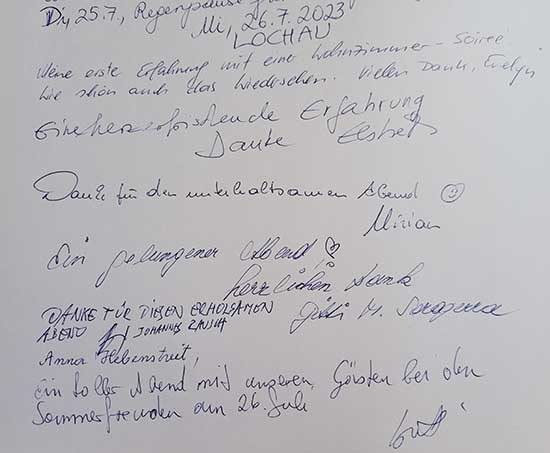 Di, 25.7., Regenpause
Mi, 26.7.2023
LOCHAU
Meine erste Erfahrung mit einer Wohnzimmer-Soiree.
Wie schön auch das Wiedersehen. Vielen Dank, Evelyn
Eine herzerfrischende Erfahrung
Danke Elsbeth
Dank für den unterhaltsamen Abend ☺
Mirian
Ein gelungener Abend,
herzlichen Dank
DANKE FÜR DIESEN ERHOLSAMEN
ABEND JOHANNES RAUSCH
Anna Hebenstreit,
Ein toller Abend mit unseren Gästen bei den
Sommerfreuden am 26. Juli